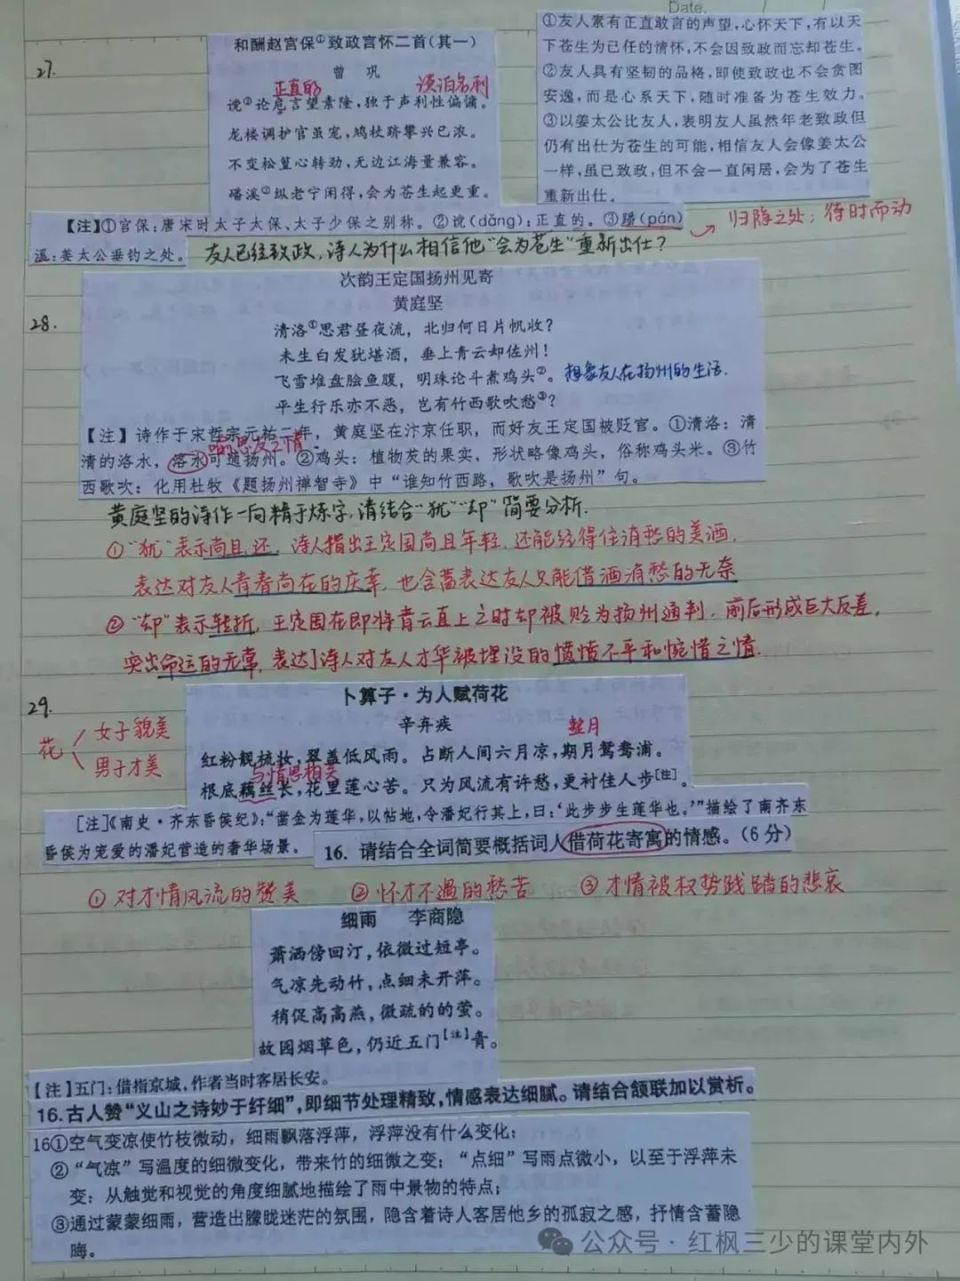 Date.
27.
和酬赵宫保①致政言怀二首(其一)
曾 巩
正直的
淡泊名利
谠②论危言望素隆，独于声利性偏慵。
龙楼调护官虽宠，鸠杖跻攀兴已浓。
不变松篁心转劲，无边江海量兼容。
磻溪③纵老宁闲得，会为苍生起更重。
①友人素有正直敢言的声望，心怀天下，有以天
下苍生为己任的情怀，不会因致政而忘却苍生。
②友人具有坚韧的品格，即使致政也不会贪图
安逸，而是心系天下，随时准备为苍生效力。
③以姜太公比友人，表明友人虽然年老致政但
仍有出仕为苍生的可能，相信友人会像姜太公
一样，虽已致政，但不会一直闲居，会为了苍生
重新出仕。
【注】①宫保：唐宋时太子太保、太子少保之别称。②谠(dǎng)：正直的。③磻(pán)
溪：姜太公垂钓之处。
归隐之处；待时而动
友人已经致政，诗人为什么相信他“会为苍生”重新出仕？
28.
次韵王定国扬州见寄
黄庭坚
清洛①思君昼夜流，北归何日片帆收？
未生白发犹堪酒，垂上青云却佐州！
飞雪堆盘脍鱼腹，明珠论斗煮鸡头②。
想象友人在扬州的生活.
平生行乐亦不恶，岂有竹西歌吹愁③？
【注】诗作于宋哲宗元祐二年，黄庭坚在汴京任职，而好友王定国被贬官。①清洛：清
喻思友之情
清的洛水，洛水可通扬州。②鸡头：植物芡的果实，形状略像鸡头，俗称鸡头米。③竹
西歌吹：化用杜牧《题扬州禅智寺》中“谁知竹西路，歌吹是扬州”句。
黄庭坚的诗作一向精于炼字，请结合“犹”“却”简要分析.
①“犹”表示尚且、还，诗人指出王定国尚且年轻，还能经得住消愁的美酒，
表达对友人青春尚在的庆幸，也含蓄表达友人只能借酒消愁的无奈
②“却”表示转折，王定国在即将青云直上之时却被贬为扬州通判，前后形成巨大反差，
突出命运的无常，表达了诗人对友人才华被埋没的愤愤不平和惋惜之情.
29.
花
女子貌美
男子才美
卜算子·为人赋荷花
辛弃疾
整月
红粉靓梳妆，翠盖低风雨。占断人间六月凉，期月鸳鸯浦。
与情思相关
根底藕丝长，花里莲心苦。只为风流有许愁，更衬佳人步[注]。
[注]《南史·齐东昏侯纪》：“凿金为莲华，以帖地，令潘妃行其上，曰：‘此步步生莲华也。’”描绘了南齐东
昏侯为宠爱的潘妃营造的奢华场景。
16. 请结合全词简要概括词人借荷花寄寓的情感。(6 分)
①对才情风流的赞美 ②怀才不遇的愁苦 ③才情被权势践踏的悲哀
细雨 李商隐
萧洒傍回汀，依微过短亭。
气凉先动竹，点细未开萍。
稍促高高燕，微疏的的萤。
故园烟草色，仍近五门[注]青。
【注】五门：借指京城，作者当时客居长安。
16.古人赞“义山之诗妙于纤细”，即细节处理精致，情感表达细腻。请结合颔联加以赏析。
16①空气变凉使竹枝微动，细雨飘落浮萍，浮萍没有什么变化；
②“气凉”写温度的细微变化，带来竹的细微之变；“点细”写雨点微小，以至于浮萍未
变；从触觉和视觉的角度细腻地描绘了雨中景物的特点；
③通过蒙蒙细雨，营造出朦胧迷茫的氛围，隐含着诗人客居他乡的孤寂之感，抒情含蓄隐
晦。
公众号·红枫三少的课堂内外